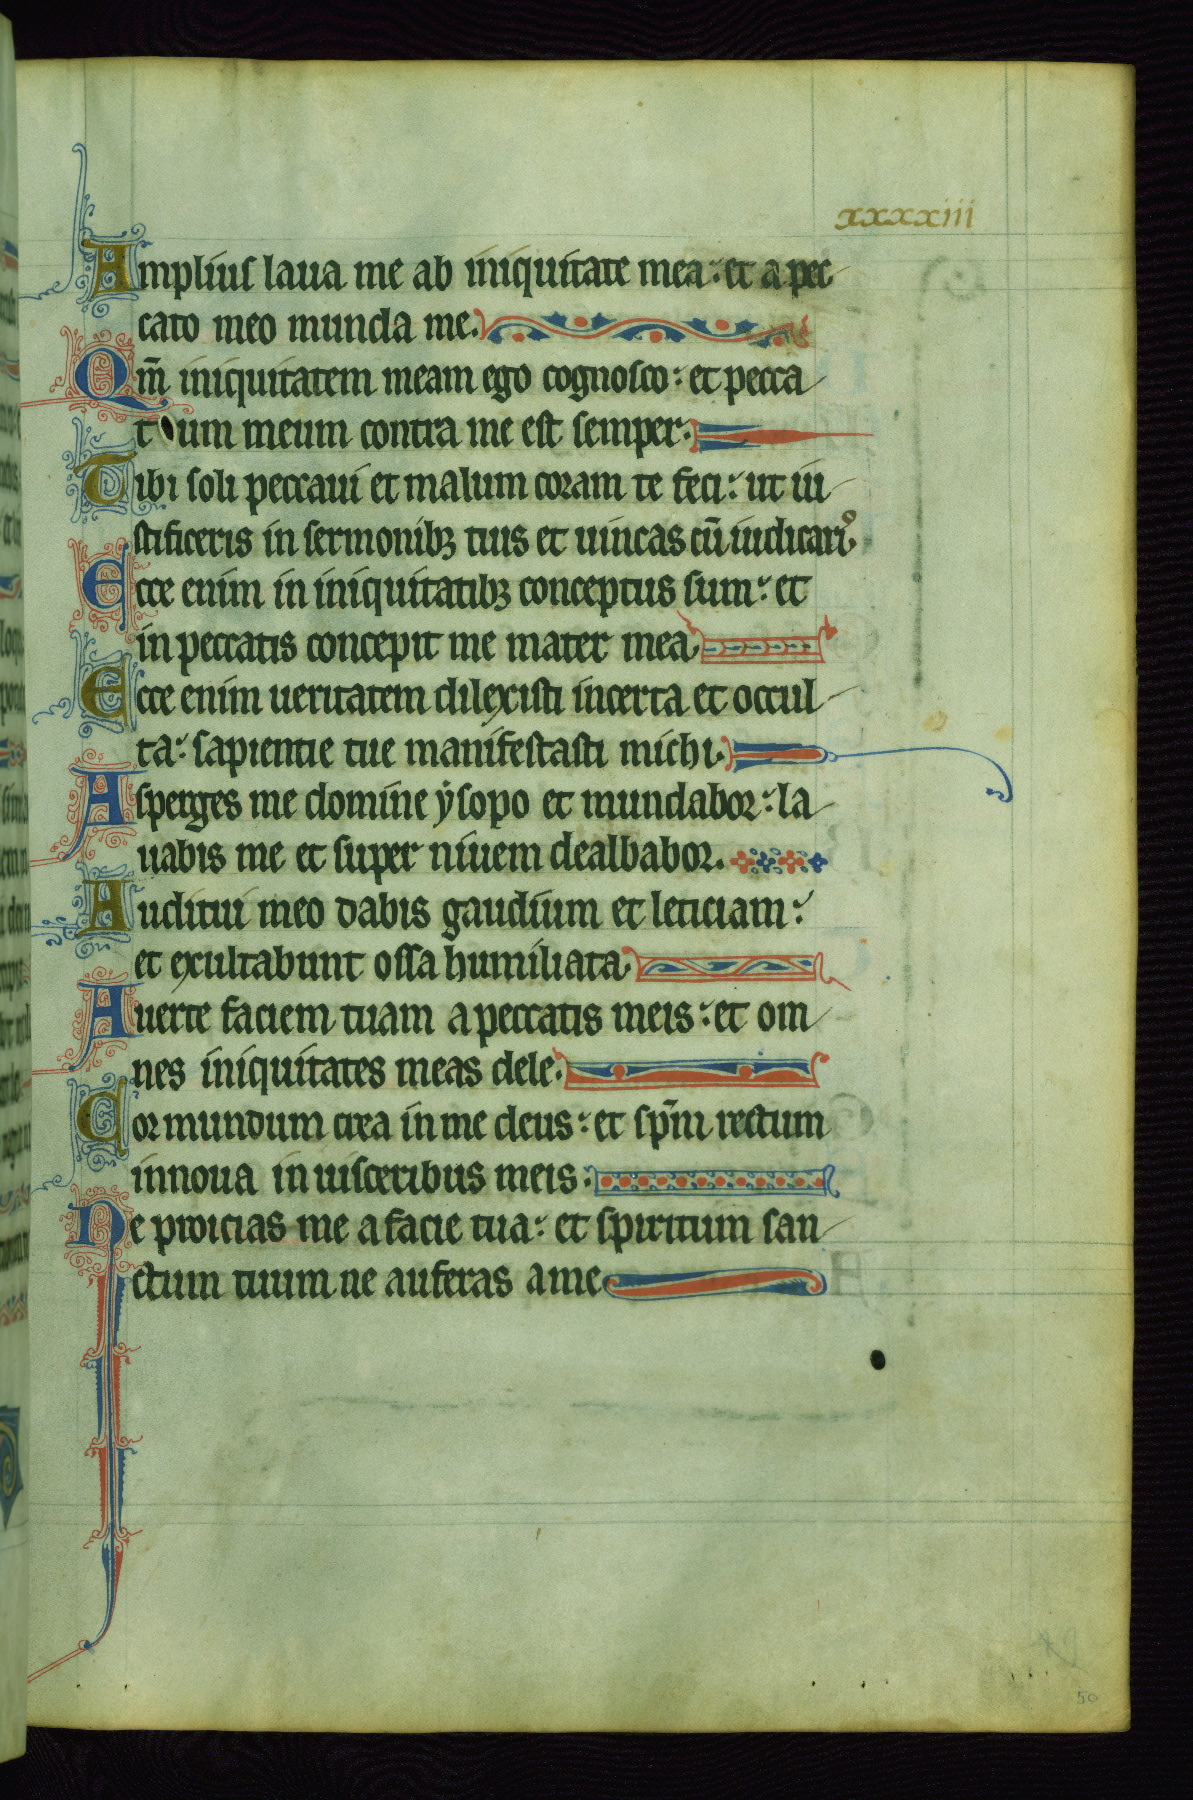 xxxxxiii
Amplius laua me ab iniquitate mea: et a pec
cato meo munda me.
Qm̄ iniquitatem meam ego cognosco: et pecca
tum meum contra me est semper.
Tibi soli peccaui et malum coram te feci: ut iu
stificeris in sermonibꝫ tuis et uincas cū iudicarꝭ
Ecce enim in iniquitatibꝫ conceptus sum: et
in peccatis concepit me mater mea
Ecce enim ueritatem dilexisti incerta et occul
ta: sapientie tue manifestasti michi.
Asperges me domine ẏsopo et mundabor: la
uabis me et super niuem dealbabor.
Auditui meo dabis gaudium et leticiam:
et exultabunt ossa humiliata
Auerte faciem tuam a peccatis meis: et om
nes iniquitates meas dele.
Cor mundum crea in me deus: et sp̄m rectum
innoua in uisceribus meis.
Ne proicias me a facie tua: et spiritum san
ctum tuum ne auferas a me
50